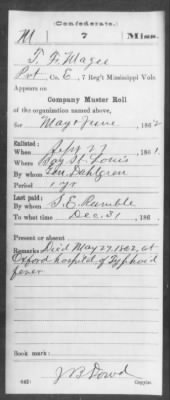 Confederate.
M 7 Miss.
T. F. Magee
Pvt, Co. E, 7 Reg't Mississippi Vols.
Appears on
Company Muster Roll
of the organization named above,
for May & June, 1862
Enlisted:
When Sept 27, 1861.
Where Bay St. Louis
By whom Gen. Dahlgren
Period 1 yr
Last paid:
By whom S. E. Rumble
To what time Dec. 31, 186
Present or absent
Remarks: Died May 27, 1862, at
Oxford hospital of Typhoid
fever
Book mark:
J B Dowd
(642) Copyist.